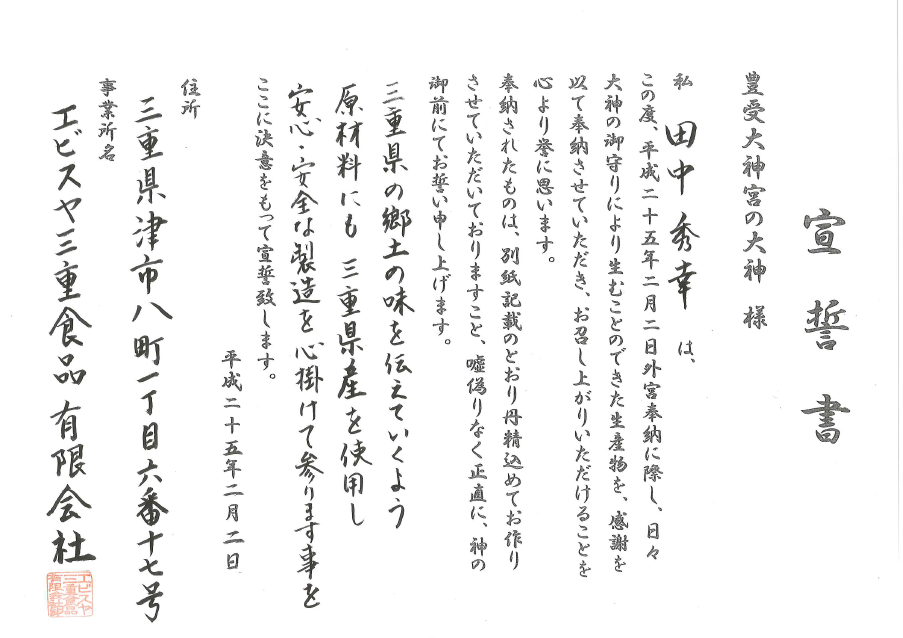 宣誓書
豊受大神宮の大神 様
私 田中秀幸 は、
この度、平成二十五年二月二日外宮奉納に際し、日々
大神の御守りにより生むことのできた生産物を、感謝を
以て奉納させていただき、お召し上がりいただけることを
心より誉に思います。
奉納されたものは、別紙記載のとおり丹精込めてお作り
させていただいておりますこと、嘘偽りなく正直に、神の
御前にてお誓い申し上げます。
三重県の郷土の味を伝えていくよう
原材料にも 三重県産を使用し
安心・安全な製造を心掛けて参ります事を
ここに決意をもって宣誓致します。
平成二十五年二月二日
住所
三重県津市八町一丁目六番十七号
事業所名
エビスヤ三重食品 有限会社
エビスヤ
三重食品
有限会社印